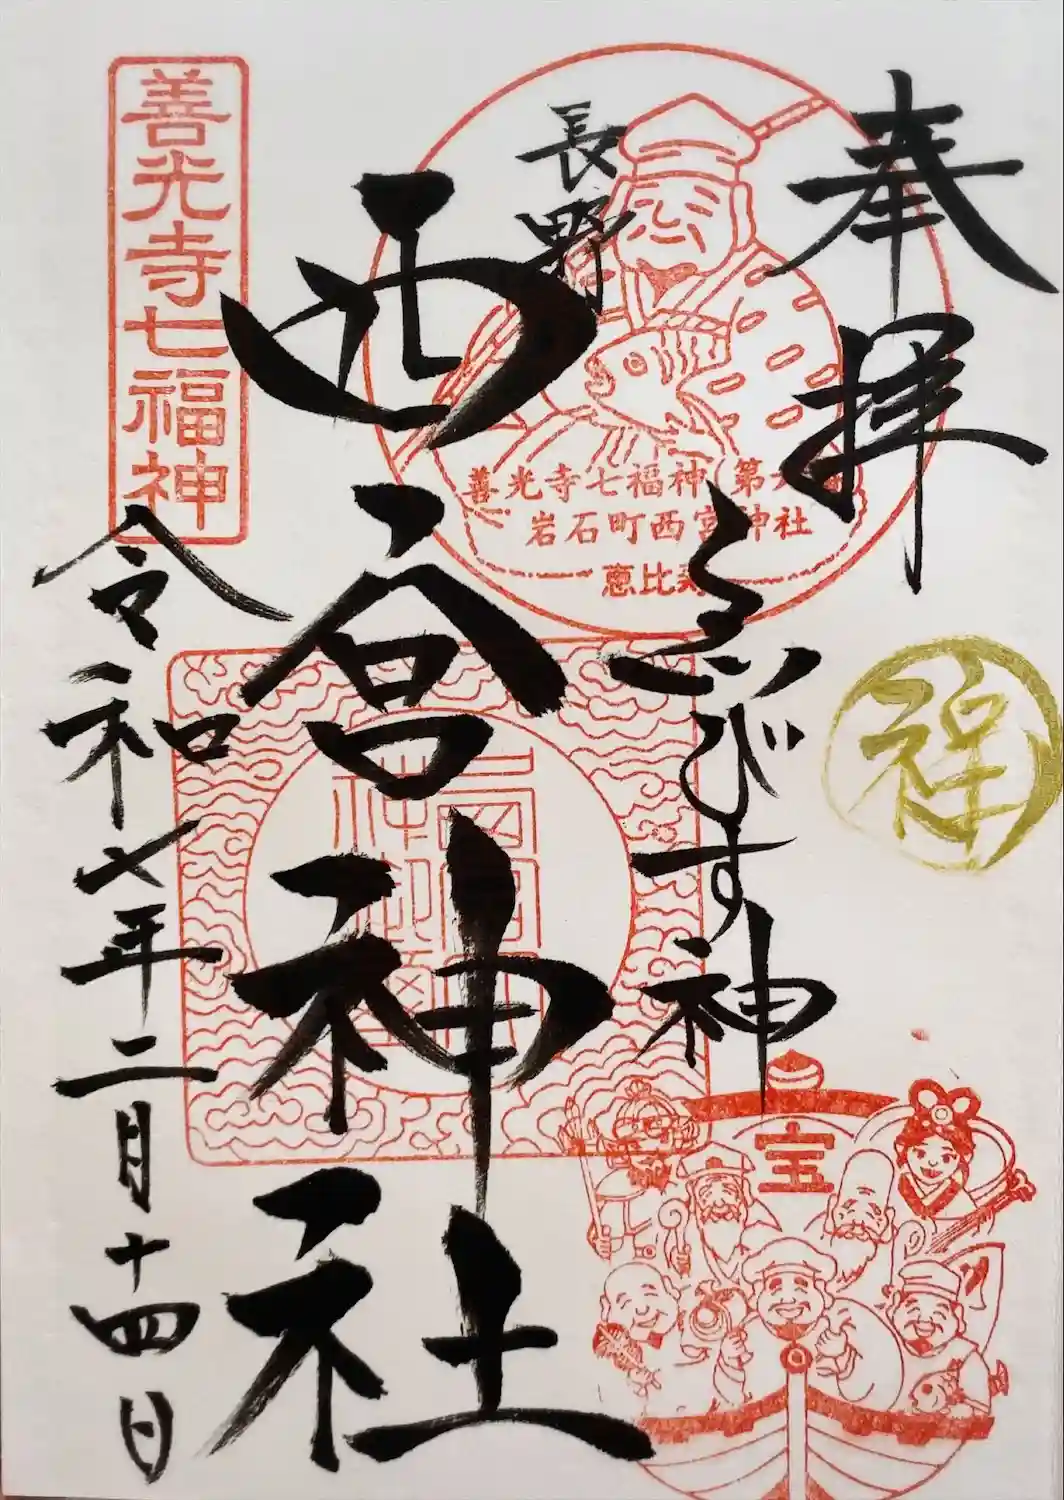 奉拝
長野
西宮神社
ゑびす神
令和七年二月十四日
善光寺七福神
善光寺七福神
岩石町西宮神社
恵比寿
祥
宝